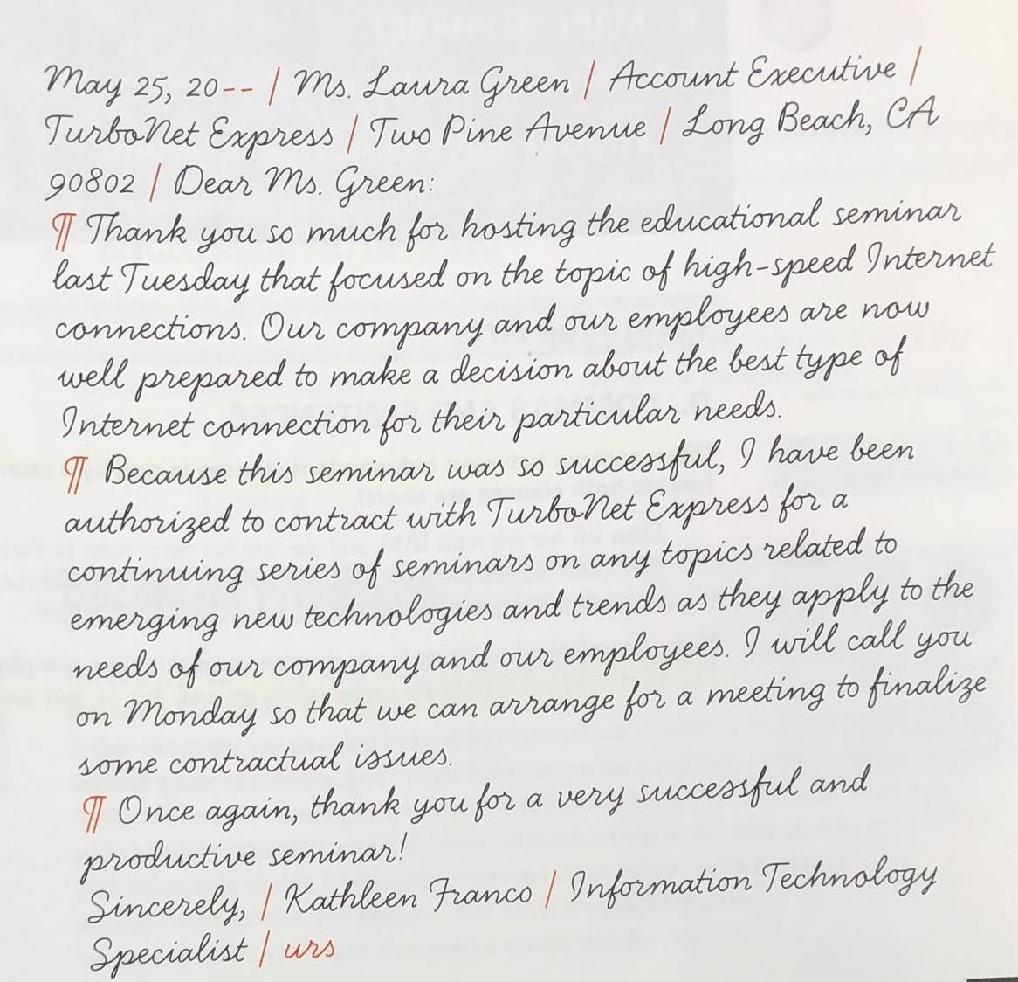 May 25, 20-- | Ms. Laura Green | Account Executive |
TurboNet Express | Two Pine Avenue | Long Beach, CA
90802 | Dear Ms. Green:
¶ Thank you so much for hosting the educational seminar
last Tuesday that focused on the topic of high-speed Internet
connections. Our company and our employees are now
well prepared to make a decision about the best type of
Internet connection for their particular needs.
¶ Because this seminar was so successful, I have been
authorized to contract with TurboNet Express for a
continuing series of seminars on any topics related to
emerging new technologies and trends as they apply to the
needs of our company and our employees. I will call you
on Monday so that we can arrange for a meeting to finalize
some contractual issues.
¶ Once again, thank you for a very successful and
productive seminar!
Sincerely, | Kathleen Franco | Information Technology
Specialist | urs